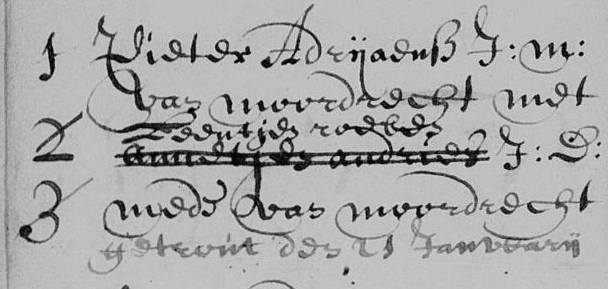 1 Pieter Adrijaenß J: m:
van moordrecht met
Teentjen roelen
2 annetjen andries J: D:
3 mede van moordrecht
getrout den 21 Januwarij